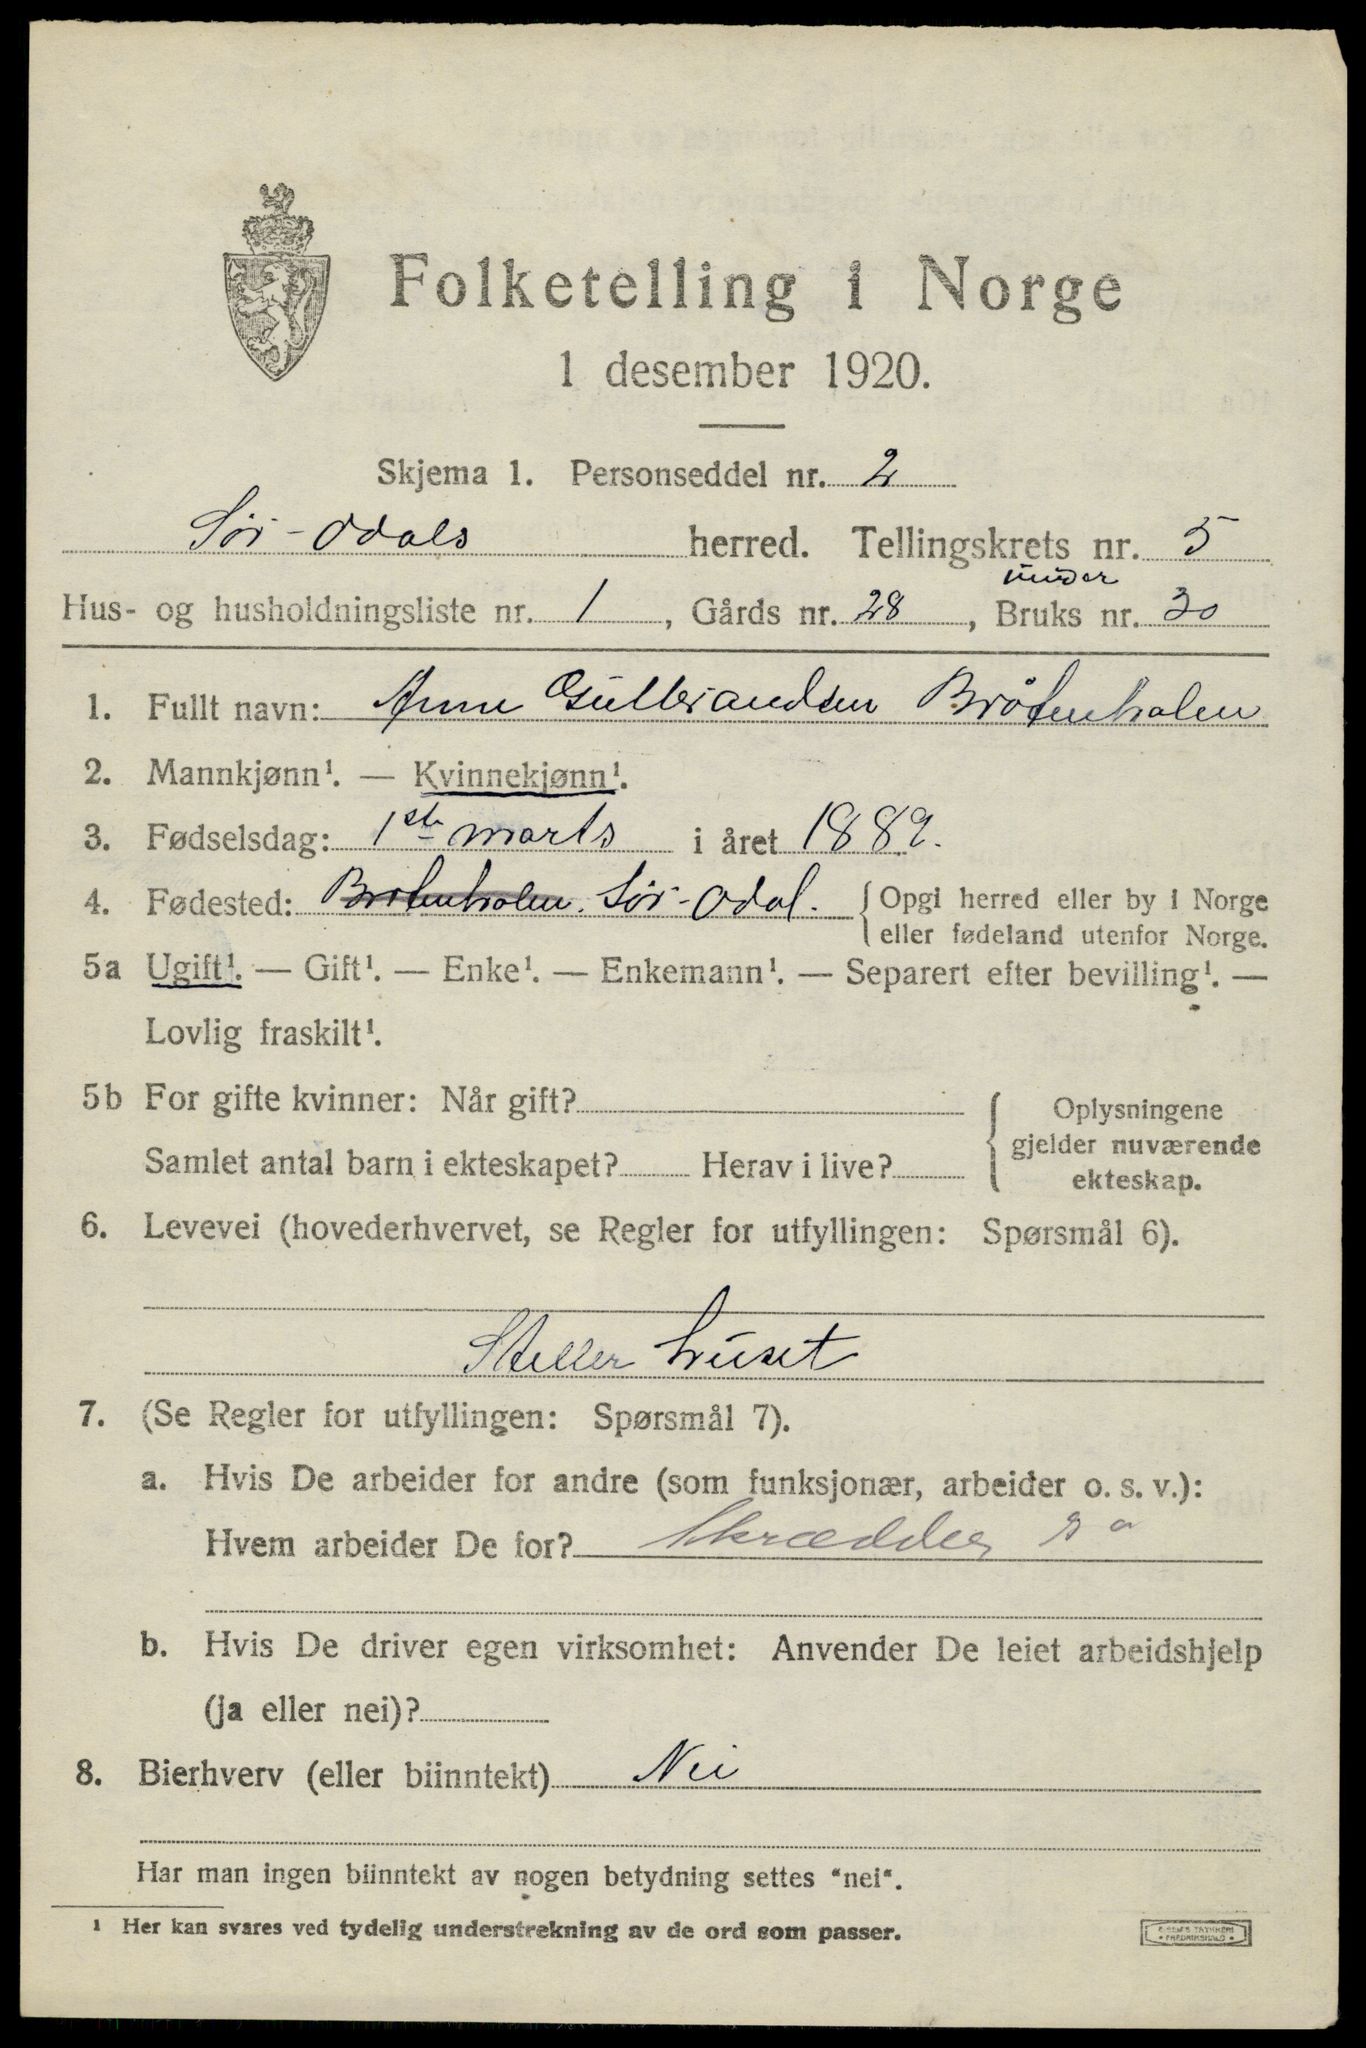 Folketelling i Norge
1 desember 1920.
Skjema 1. Personseddel nr. 2
Sör-Odals herred. Tellingskrets nr. 5
under
Hus- og husholdningsliste nr. 1, Gårds nr. 28, Bruks nr. 30
1. Fullt navn: Anne Gulbrandsen Bråtenholen
2. Mannkjønn¹. — Kvinnekjønn¹.
3. Fødselsdag: 1ste marts i året 1889.
4. Fødested: Bråtenholen. Sör-Odal. { Opgi herred eller by i Norge
eller fødeland utenfor Norge.
5a Ugift¹. — Gift¹. — Enke¹. — Enkemann¹. — Separert efter bevilling¹. —
Lovlig fraskilt¹.
5b For gifte kvinner: Når gift?
Samlet antal barn i ekteskapet? Herav i live?
Oplysningene
gjelder nuværende
ekteskap.
6. Levevei (hovederhvervet, se Regler for utfyllingen: Spørsmål 6).
Steller huset
7. (Se Regler for utfyllingen: Spørsmål 7).
a. Hvis De arbeider for andre (som funksjonær, arbeider o. s. v.):
Hvem arbeider De for? Skrædder
b. Hvis De driver egen virksomhet: Anvender De leiet arbeidshjelp
(ja eller nei)?
8. Bierhverv (eller biinntekt) Nei
Har man ingen biinntekt av nogen betydning settes "nei".
¹ Her kan svares ved tydelig understrekning av de ord som passer.